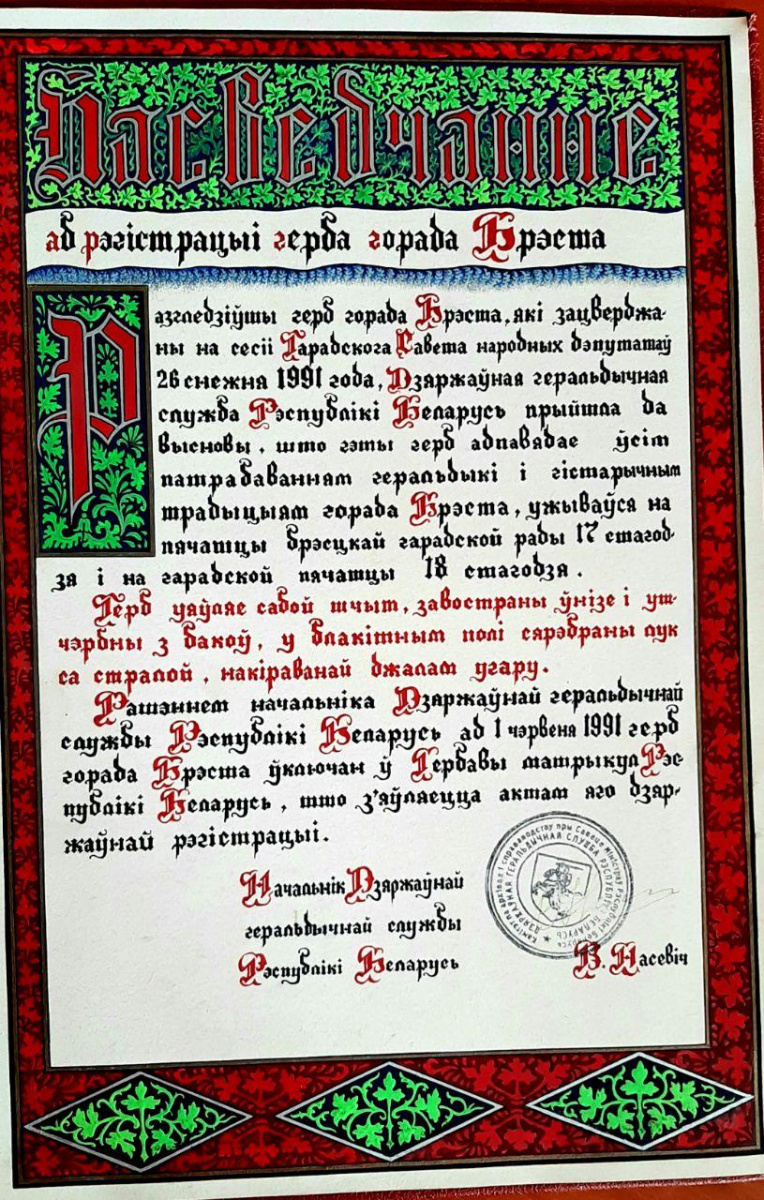 Пасведчанне
аб рэгістрацыі герба горада Брэста
Разгледзіўшы герб горада Брэста, які зацверджа-
ны на сесіі Гарадскога Савета народных дэпутатаў
26 снежня 1991 года, Дзяржаўная геральдычная
служба Рэспублікі Беларусь прыйшла да
высновы, што гэты герб адпавядае ўсім
патрабаванням геральдыкі і гістарычным
традыцыям горада Брэста, ужываўся на
пячатцы брэсцкай гарадской рады 17 стагод-
зя і на гарадской пячатцы 18 стагодзя.
Герб уяўляе сабой шчыт, завостраны ўнізе і ушчэрбны з бакоў, у блакітным полі сярэбраны лук
са стралой, накіраванай джалам угару.
Рашэннем начальніка Дзяржаўнай геральдычнай
службы Рэспублікі Беларусь ад 1 чэрвеня 1991 герб
горада Брэста ўключан ў Гербавы матрыкул Рэс-
публікі Беларусь, што з'яўляецца актам яго дзяр-
жаўнай рэгістрацыі.
Начальнік Дзяржаўнай
геральдычнай службы
Рэспублікі Беларусь В. Насевіч
Камітэт па архівах і справаводству пры Савеце Міністраў Рэспублікі Беларусь
ДЗЯРЖАЎНАЯ ГЕРАЛЬДЫЧНАЯ СЛУЖБА РЭСПУБЛІКІ БЕЛАРУСЬ